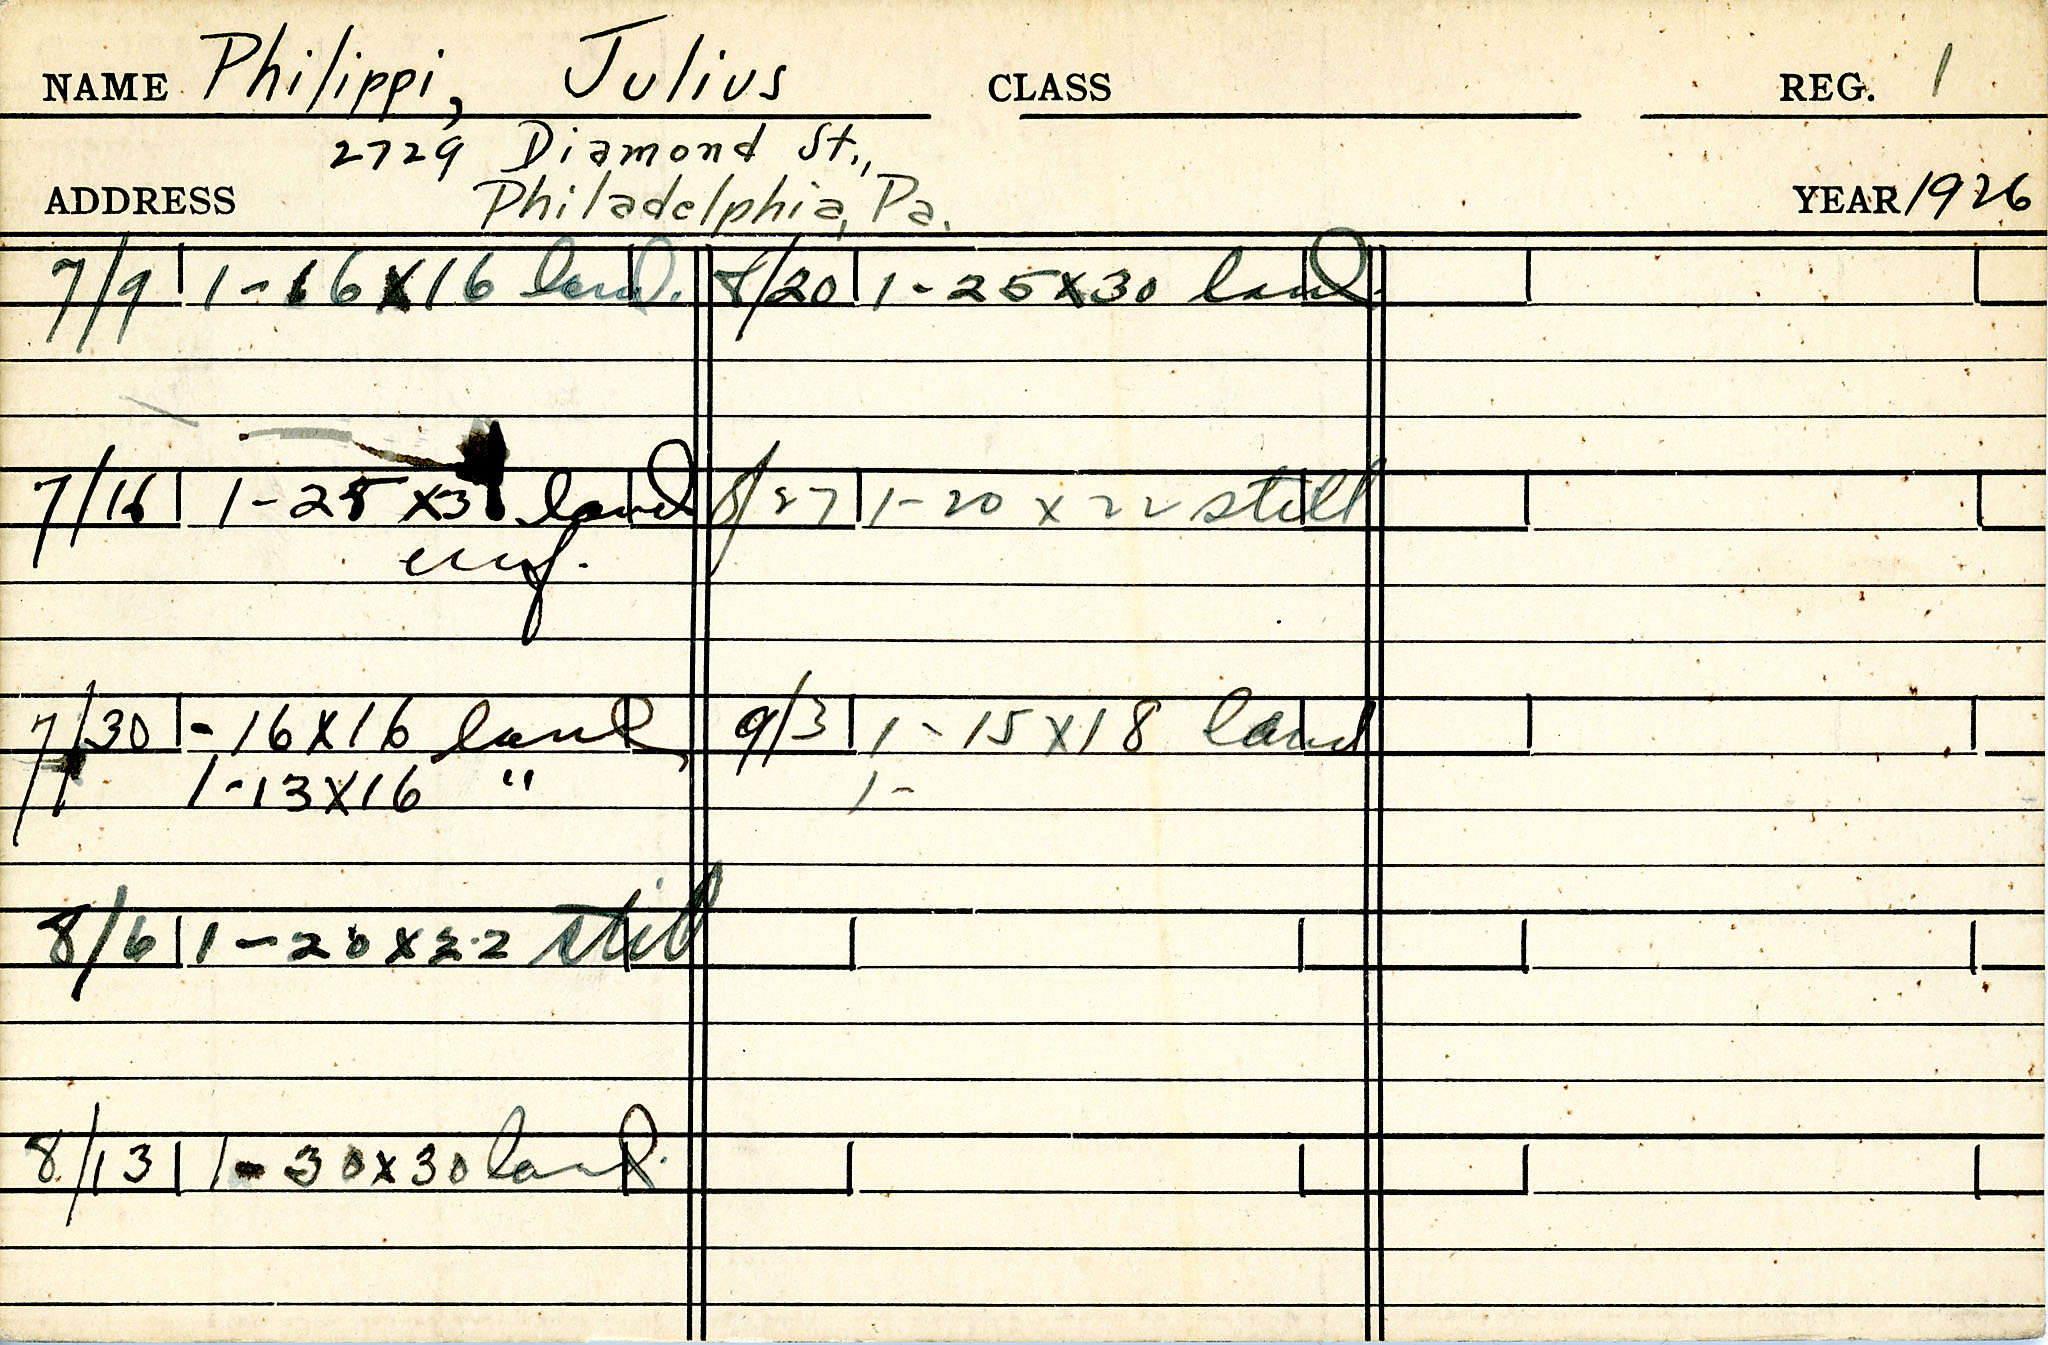 NAME Philippi, Julius CLASS REG. 1
2729 Diamond St.,
ADDRESS Philadelphia, Pa. YEAR 1926
7/9 1-16x16 land.
7/16 1-25x30 land
unf.
7/30 - 16x16 land
1-13x16 "
8/6 1-20x22 still
8/13 1-30x30 land.
8/20 1-25x30 land
8/27 1-20x22 still
9/3 1-15x18 land
1-